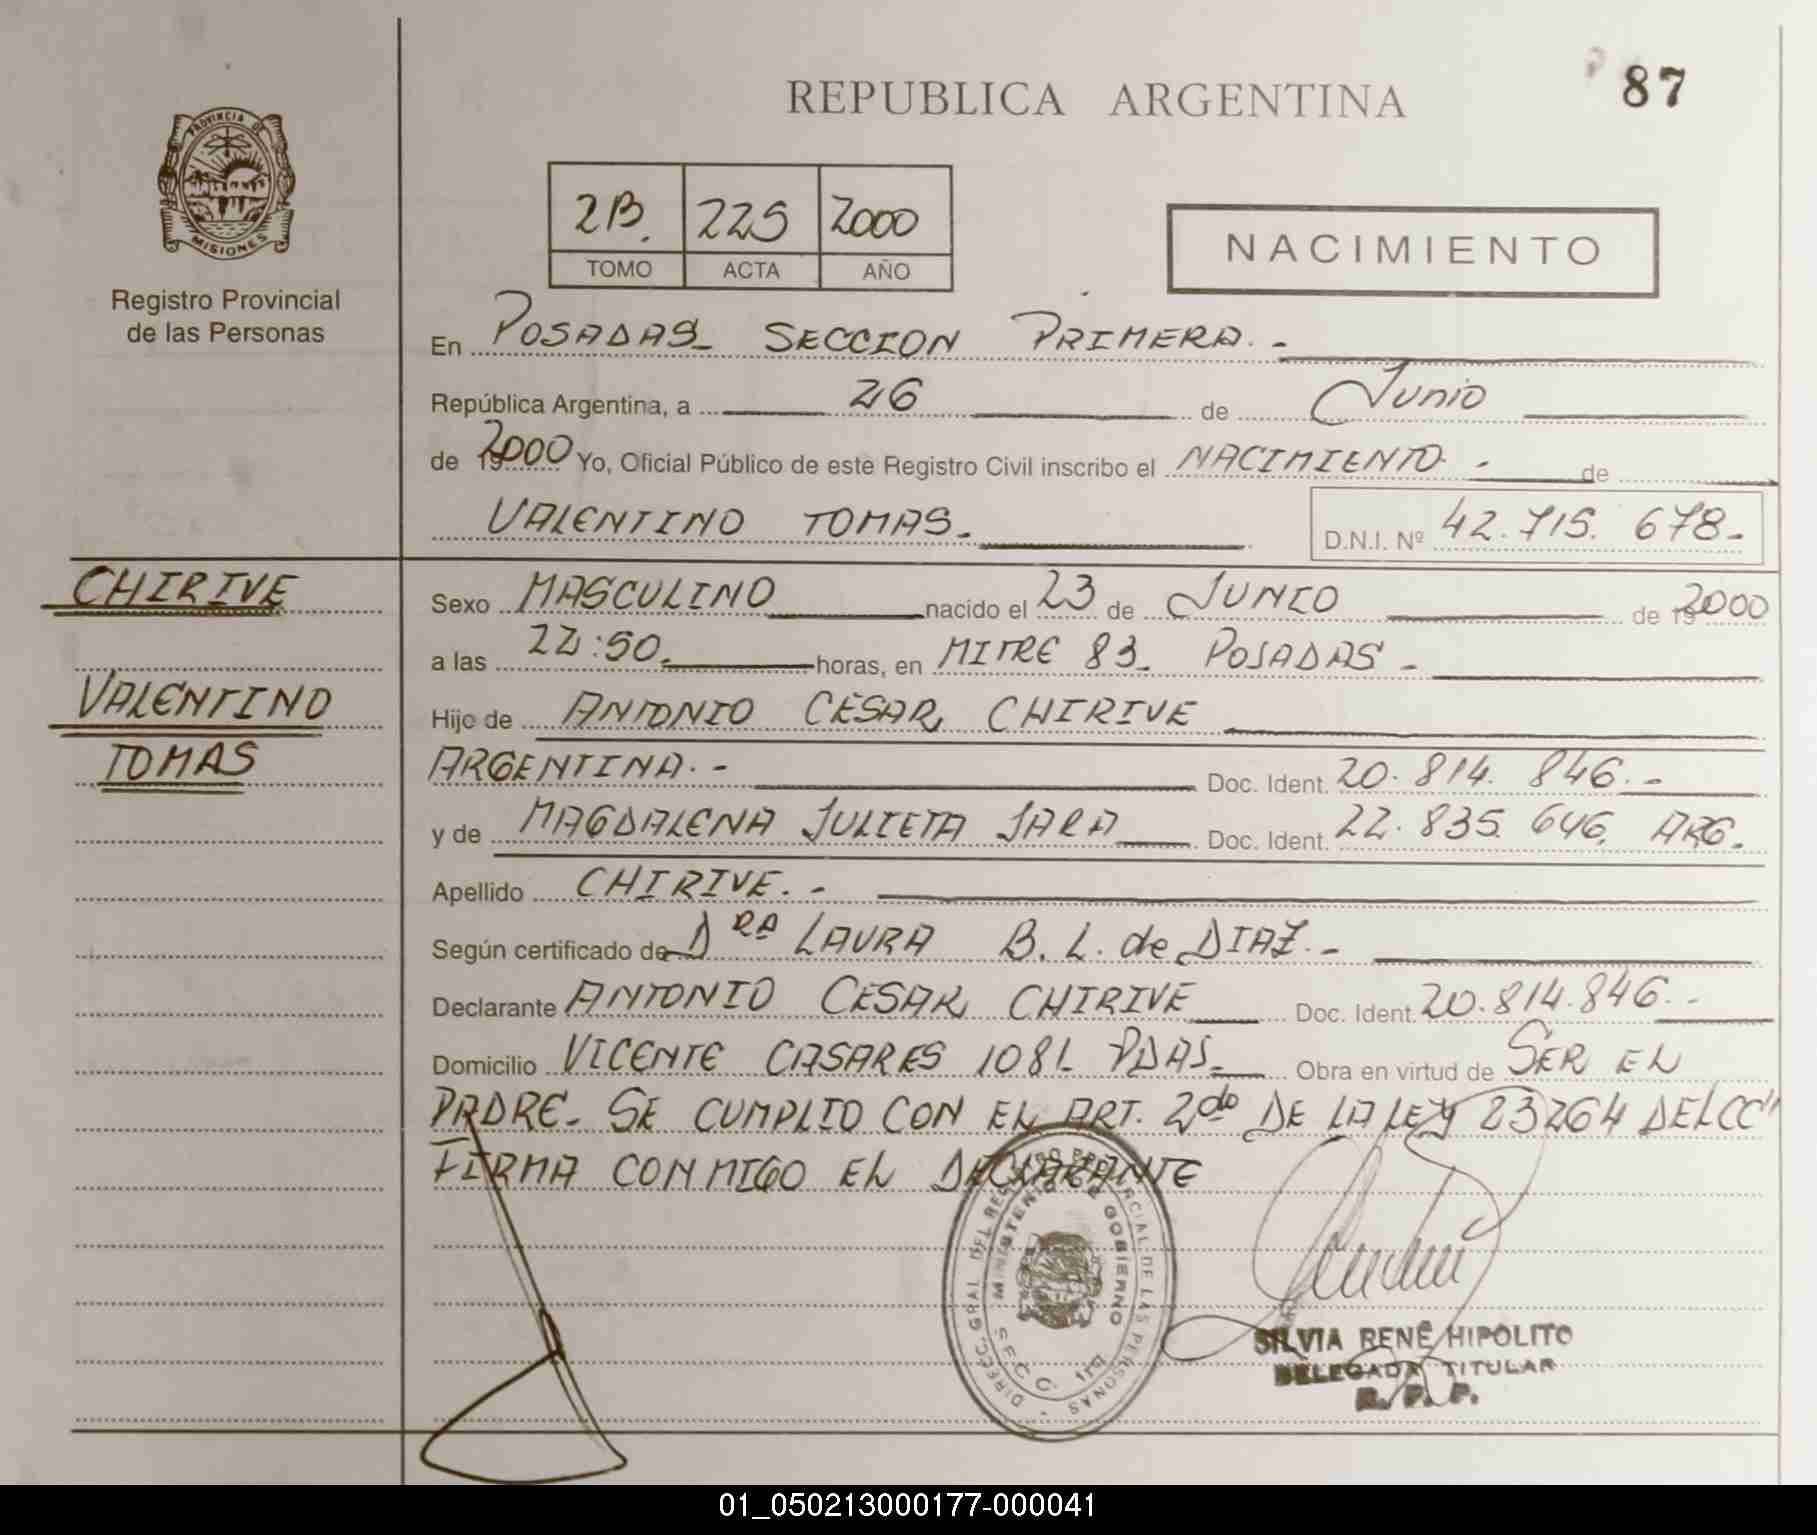 REPUBLICA ARGENTINA
87
PROVINCIA DE
MISIONES
Registro Provincial
de las Personas
2B. 225 2000
TOMO ACTA AÑO
NACIMIENTO
En POSADAS- SECCION PRIMERA.-
República Argentina, a 26 de Junio
de 2000 Yo, Oficial Público de este Registro Civil inscribo el NACIMIENTO.- de
VALENTINO TOMAS.- D.N.I. Nº 42.715.678-
CHIRIVE
VALENTINO
TOMAS
Sexo MASCULINO nacido el 23 de JUNIO de 2000
a las 22:50.- horas, en MITRE 83- POSADAS-
Hijo de ANTONIO CÉSAR CHIRIVE
ARGENTINA.- Doc. Ident. 20.814.846.-
y de MAGDALENA JULIETA JARA Doc. Ident. 22.835.646. ARG.-
Apellido CHIRIVE.-
Según certificado de DRA LAURA B. L. de DIAZ.-
Declarante ANTONIO CESAR CHIRIVE Doc. Ident. 20.814.846.-
Domicilio VICENTE CASARES 1081- PDAS- Obra en virtud de SER EL
PADRE- SE CUMPLIO CON EL ART. 2do DE LA LEY 23264 DEL CC"
FIRMA CONMIGO EL DECLARANTE
DIREC. GRAL. DEL REGISTRO PROVINCIAL DE LAS PERSONAS
MINISTERIO DE GOBIERNO
SECC. 1ra
SILVIA RENÉ HIPOLITO
DELEGADA TITULAR
R. P. P.
01_050213000177-000041